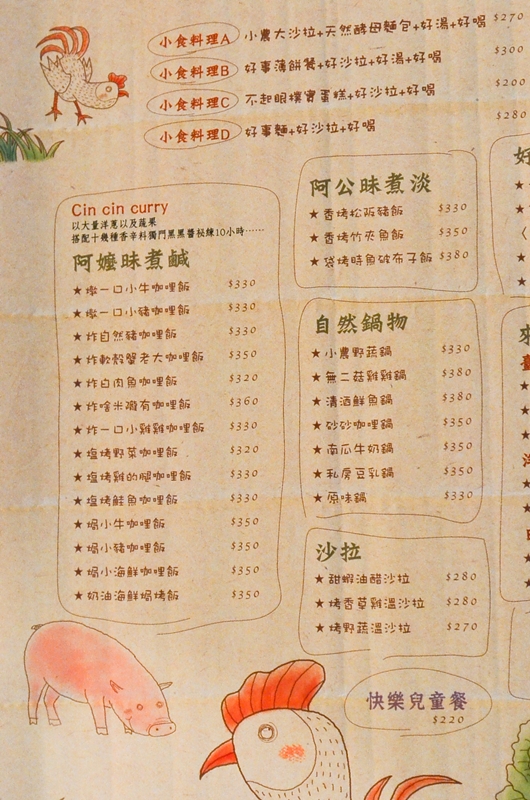 小食料理A 小農大沙拉+天然酵母麵包+好湯+好喝 $270
小食料理B 好事薄餅餐+好沙拉+好湯+好喝 $300
小食料理C 不起眼樸實蛋糕+好沙拉+好喝 $200
小食料理D 好事麵+好沙拉+好喝 $280
Cin cin curry
以大量洋蔥以及蔬果
搭配十幾種香辛料獨門黑黑醬秘煉10小時……
阿嬤味煮鹹
★燉一口小牛咖哩飯 $330
★燉一口小豬咖哩飯 $330
★炸自然豬咖哩飯 $330
★炸軟殼蟹老大咖哩飯 $350
★炸白肉魚咖哩飯 $320
★炸啥米攏有咖哩飯 $360
★炸一口小雞雞咖哩飯 $330
★塩烤野菜咖哩飯 $320
★塩烤雞的腿咖哩飯 $330
★塩烤鮭魚咖哩飯 $330
★焗小牛咖哩飯 $350
★焗小豬咖哩飯 $350
★焗小海鮮咖哩飯 $350
★奶油海鮮焗烤飯 $350
阿公味煮淡
★香烤松阪豬飯 $330
★香烤竹夾魚飯 $350
★袋烤時魚破布子飯 $380
自然鍋物
★小農野蔬鍋 $330
★無二菇雞雞鍋 $380
★清酒鮮魚鍋 $380
★砂砂咖哩鍋 $350
★南瓜牛奶鍋 $350
★私房豆乳鍋 $350
★原味鍋 $330
沙拉
★甜蝦油醋沙拉 $280
★烤香草雞溫沙拉 $280
★烤野蔬溫沙拉 $270
快樂兒童餐
$220
好